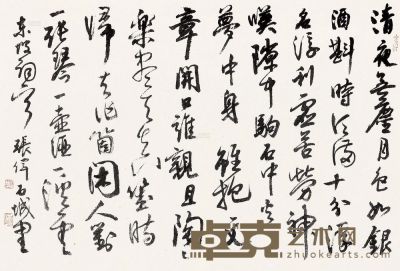 清夜無塵月色如銀
酒斟時須滿十分浮
名浮利虛苦勞神
嘆隙中駒石中火
夢中身雖抱文
章開口誰親且陶陶
樂盡天真幾時
歸去作箇閑人對
一張琴一壺酒一溪雲
東坡詞 張 石城書
卓克艺术网